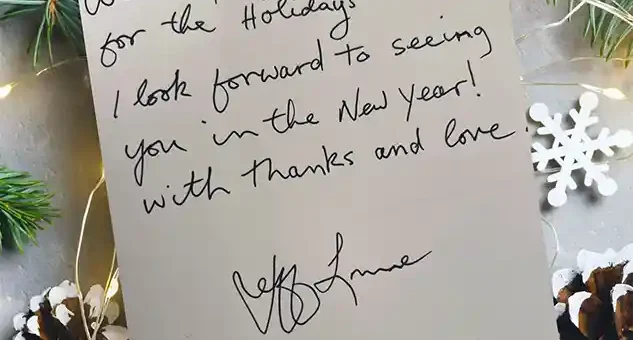 for the Holidays
I look forward to seeing
you in the New Year!
with thanks and love.
Jeff Lynne